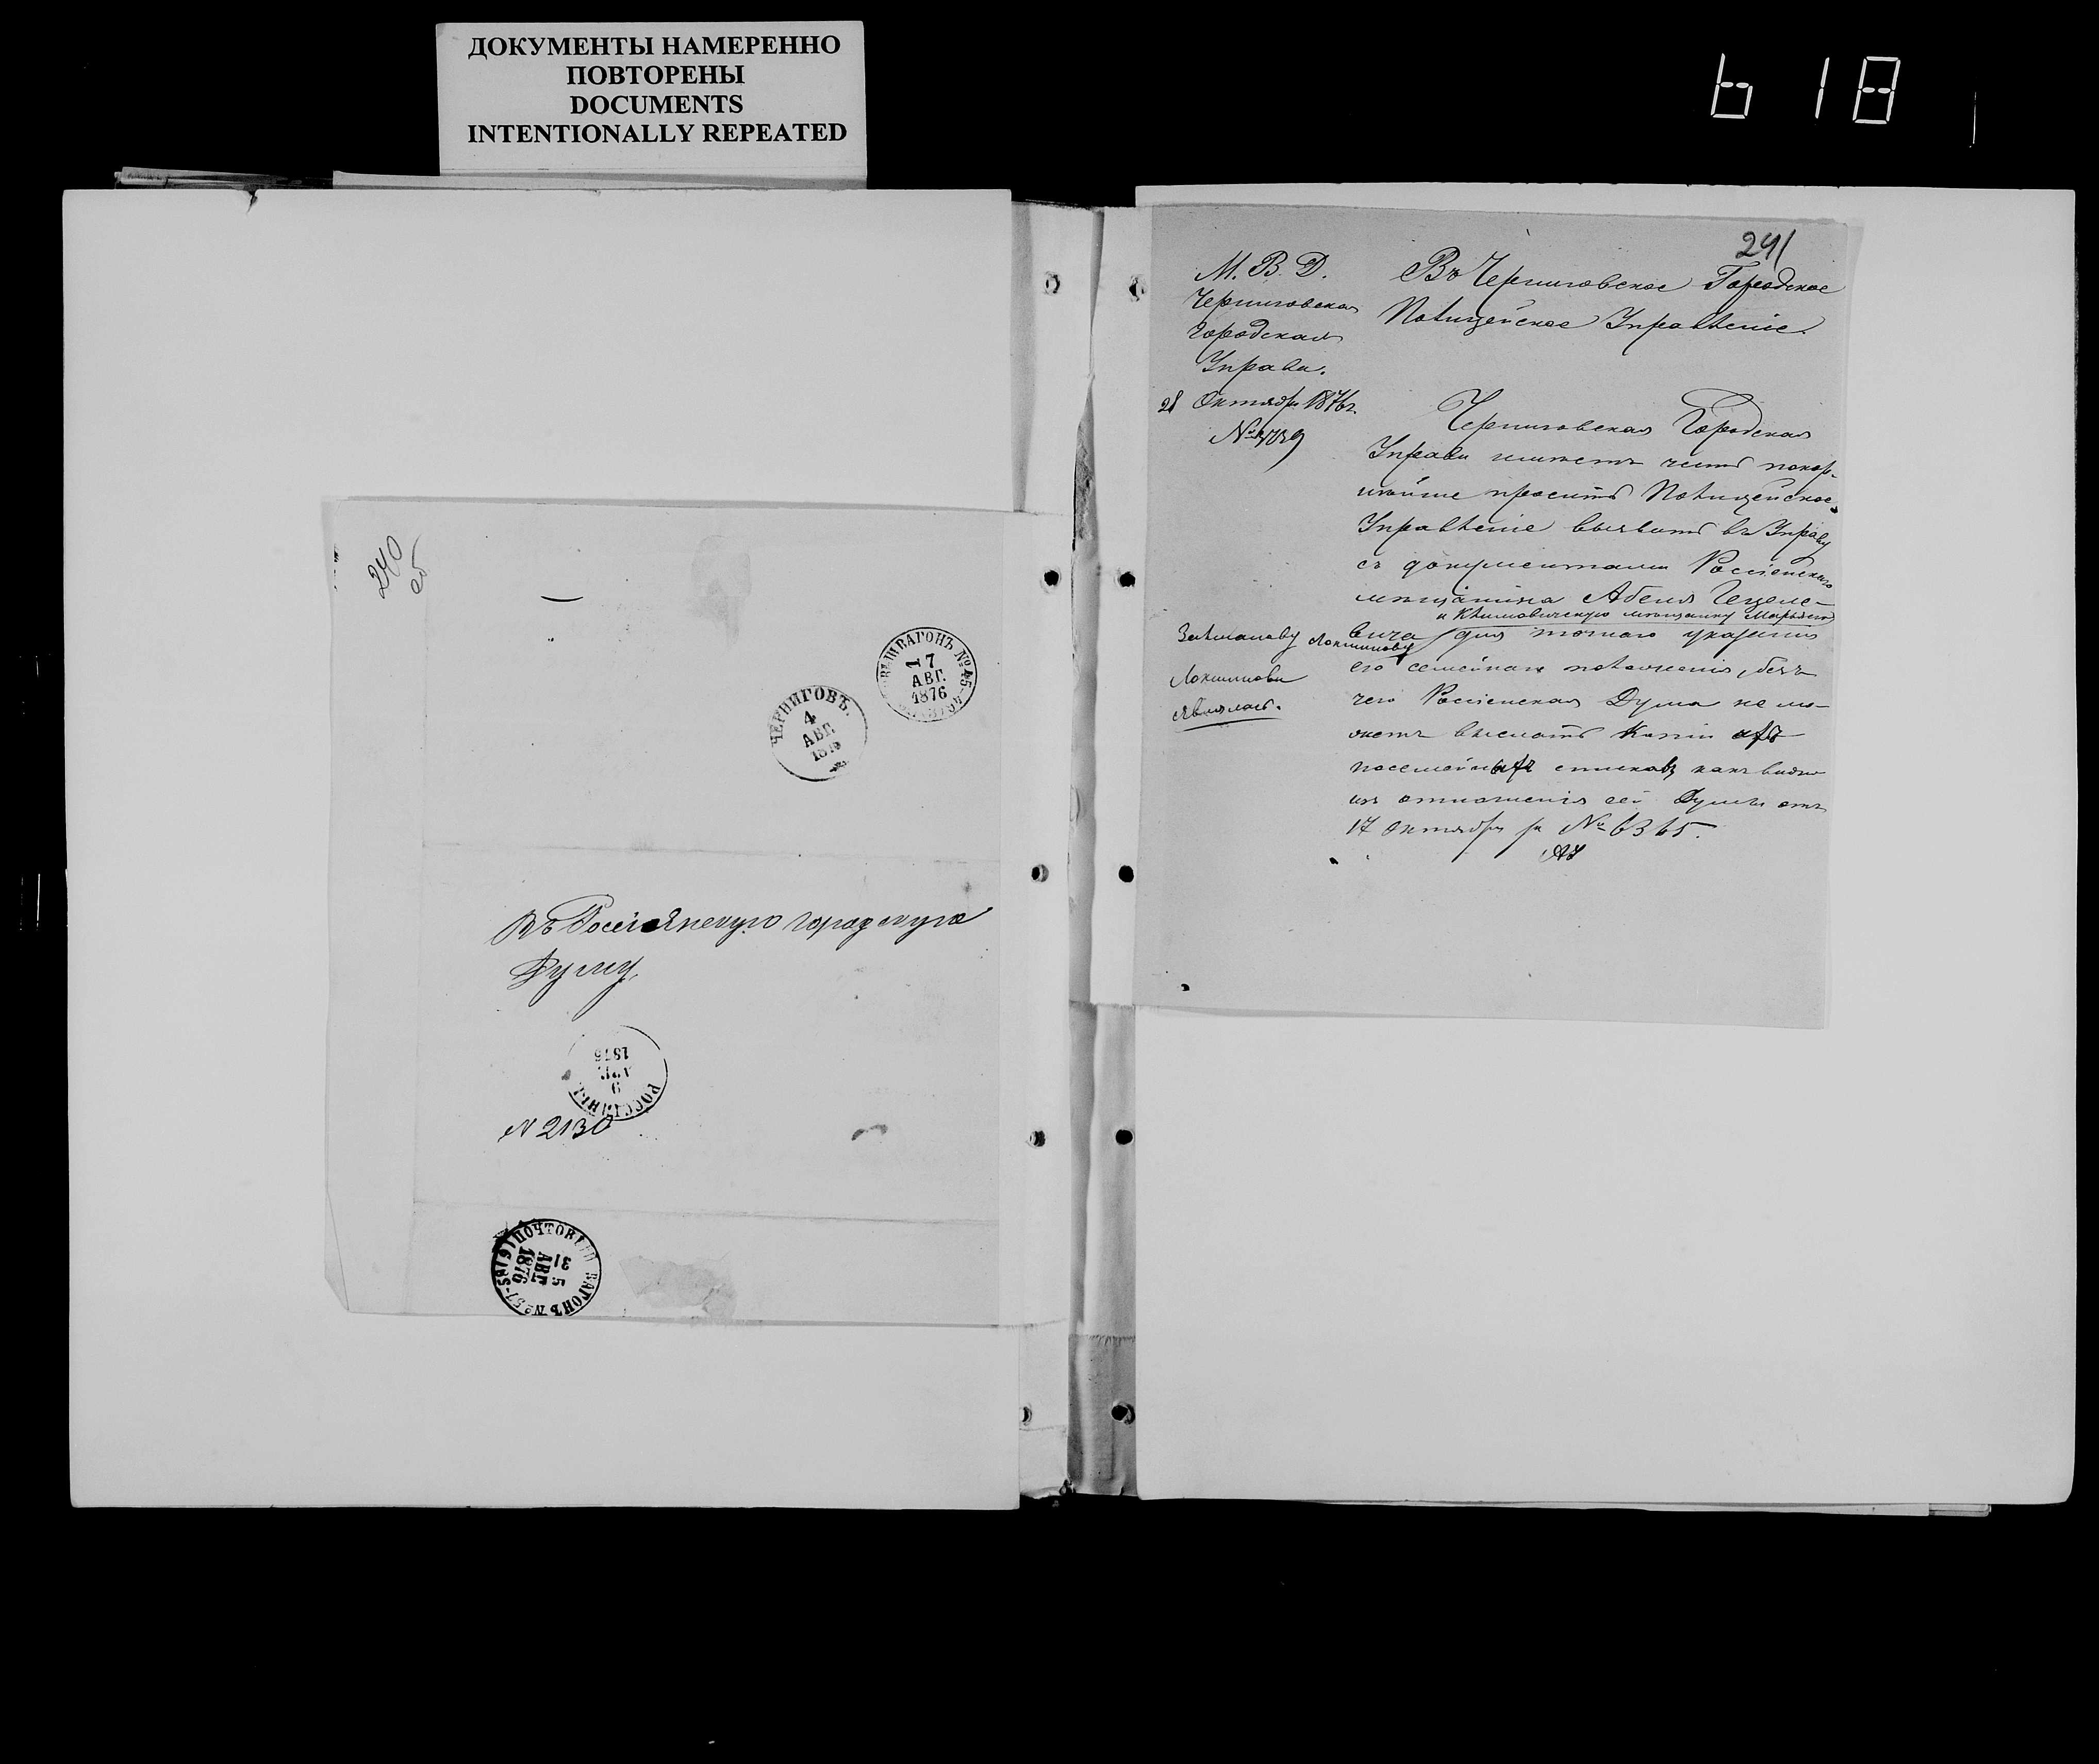 ДОКУМЕНТЫ НАМЕРЕННО
ПОВТОРЕНЫ
DOCUMENTS
INTENTIONALLY REPEATED
618
240
об
ВАГОНЪ №
7
АВГ.
1876
ЧЕРНИГОВЪ.
4
АВГ.
1876
Въ Россіянскую городскую
Думу
РОССІЕНЫ
6
АВГ.
1876
N 2130
ПОЧТОВЫЙ ВАГОНЪ № 57-58 (6)
31
5
АВГ
1876
241
М. В. Д.
Черниговская
Городская
Управа.
21 Октября 1876 г.
№
Въ Черниговское Городское
Полицейское Управленіе.
Черниговская Городская
Управа имѣетъ честь покор-
нѣйше просить Полицейское
Управленіе вызвать въ Управу
съ документами Россіенскаго
мѣщанина Абеля Ицеле-
и Климовичскую мѣщанку
вича для точнаго указанія
его семейнаго положенія, безъ
чего Россіенская Дума не мо-
жетъ выслать копіи съ
посемейныхъ списковъ какъ видно
изъ отношенія сей Думы отъ
17 Октября за № 6365.
Локшинова
явилась.